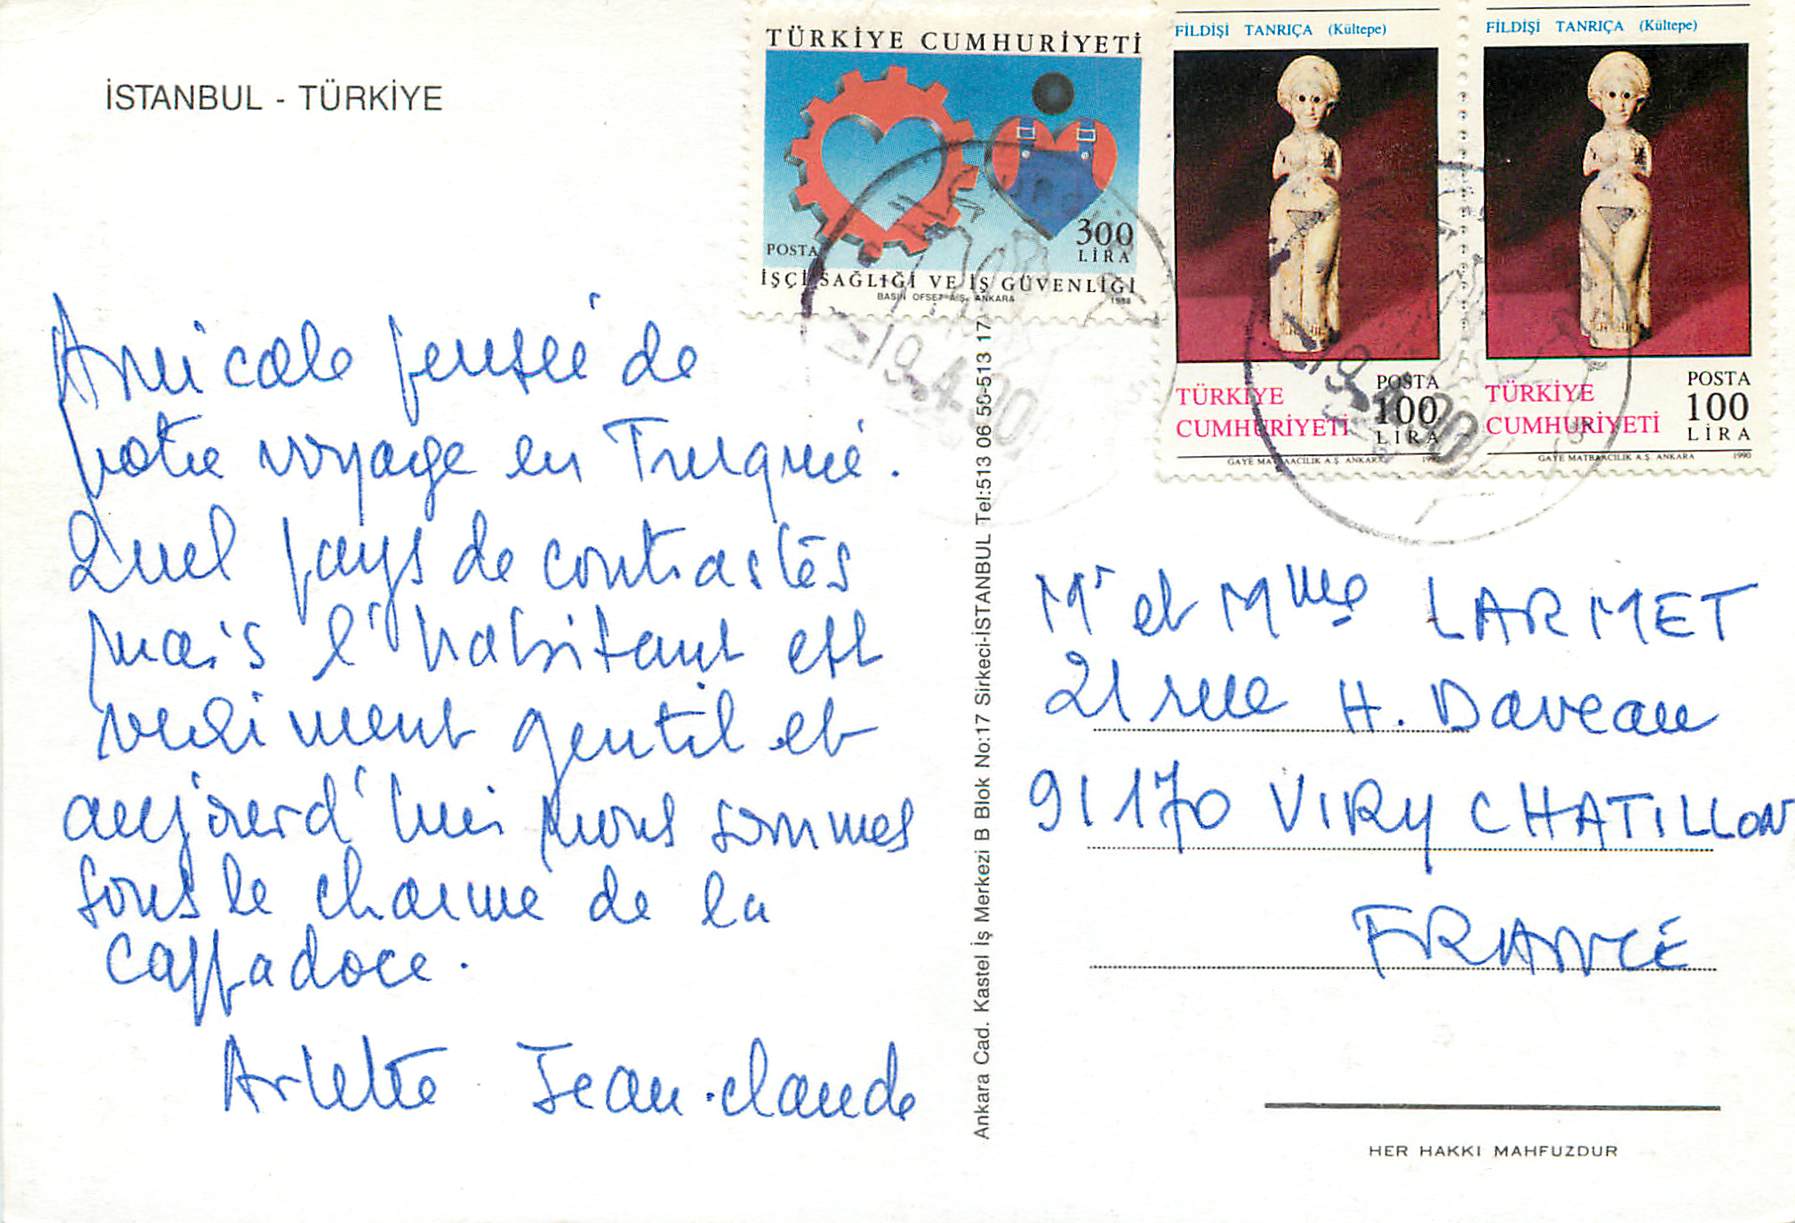 İSTANBUL - TÜRKİYE
TÜRKİYE CUMHURİYETİ
300
LİRA
POSTA
İŞÇİ SAĞLIĞI VE İŞ GÜVENLİĞİ
BASIN OFSET A.Ş. ANKARA 1988
FİLDİŞİ TANRIÇA (Kültepe)
TÜRKİYE
CUMHURİYETİ
POSTA
100
LİRA
GAYE MATBAACILIK A.Ş. ANKARA 1990
FİLDİŞİ TANRIÇA (Kültepe)
TÜRKİYE
CUMHURİYETİ
POSTA
100
LİRA
GAYE MATBAACILIK A.Ş. ANKARA 1990
-19.4.90
-19.4.90
Amicale pensée de
votre voyage en Turquie.
Quel pays de contrastes
mais l'habitant est
vraiment gentil et
aujourd'hui nous sommes
sous le charme de la
Cappadoce.
Arlette Jean-claude
Ankara Cad. Kastel İş Merkezi B Blok No:17 Sirkeci-İSTANBUL Tel:513 06 50-513 17
Mr et Mme LARMET
21 rue H. Daveau
91170 VIRY CHATILLON
FRANCE
HER HAKKI MAHFUZDUR